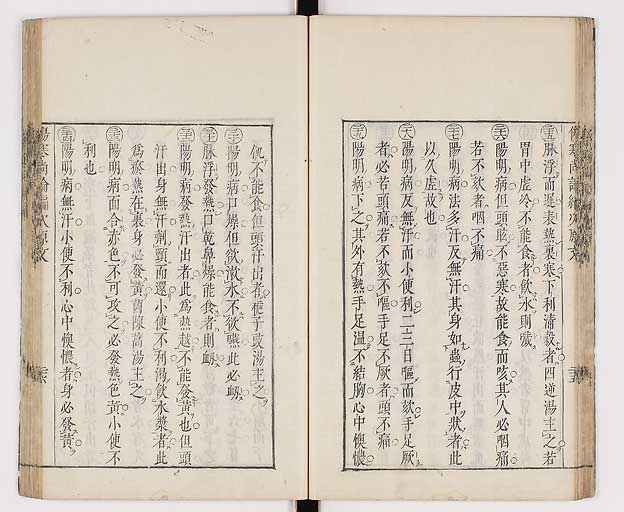 脉浮而遲表熱裏寒下利清穀者四逆湯主之若
胃中虚冷不能食者飲水則噦
陽明病但頭眩不惡寒故能食而咳其人必咽痛
若不欬者咽不痛
陽明病法多汗反無汗其身如蟲行皮中狀者此
以久虚故也
陽明病反無汗而小便利二三日嘔而欬手足厥
者必苦頭痛若不欬不嘔手足不厥者頭不痛
陽明病下之其外有熱手足温不結胸心中懊憹
飢不能食但頭汗出者梔子豉湯主之
陽明病口燥但欲漱水不欲嚥此必衂
脉浮發熱口乾鼻燥能食者則衂
陽明病發熱汗出者此爲熱越不能發黄也但頭
汗出身無汗劑頸而還小便不利渴飲水漿者此
爲瘀熱在裏身必發黄茵陳蒿湯主之
陽明病面合赤色不可攻之必發熱色黄小便不
利也
陽明病無汗小便不利心中懊憹者身必發黄